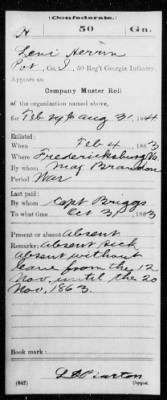 (Confederate.)
H 50 Ga.
Levi Herrin
Pvt, Co. I, 50 Reg't Georgia Infantry.
Appears on
Company Muster Roll
of the organization named above,
for Feb 29 to Aug 31, 1864
Enlisted:
When Feb 4, 1863
Where Fredericksburg Va
By whom Maj Brandon
Period War
Last paid:
By whom Capt Briggs
To what time Oct 31, 1863
Present or absent Absent
Remarks: Absent sick
Absent without
leave from the 12
Nov. until the 20
Nov, 1863.
Book mark:
(642) Copyist.